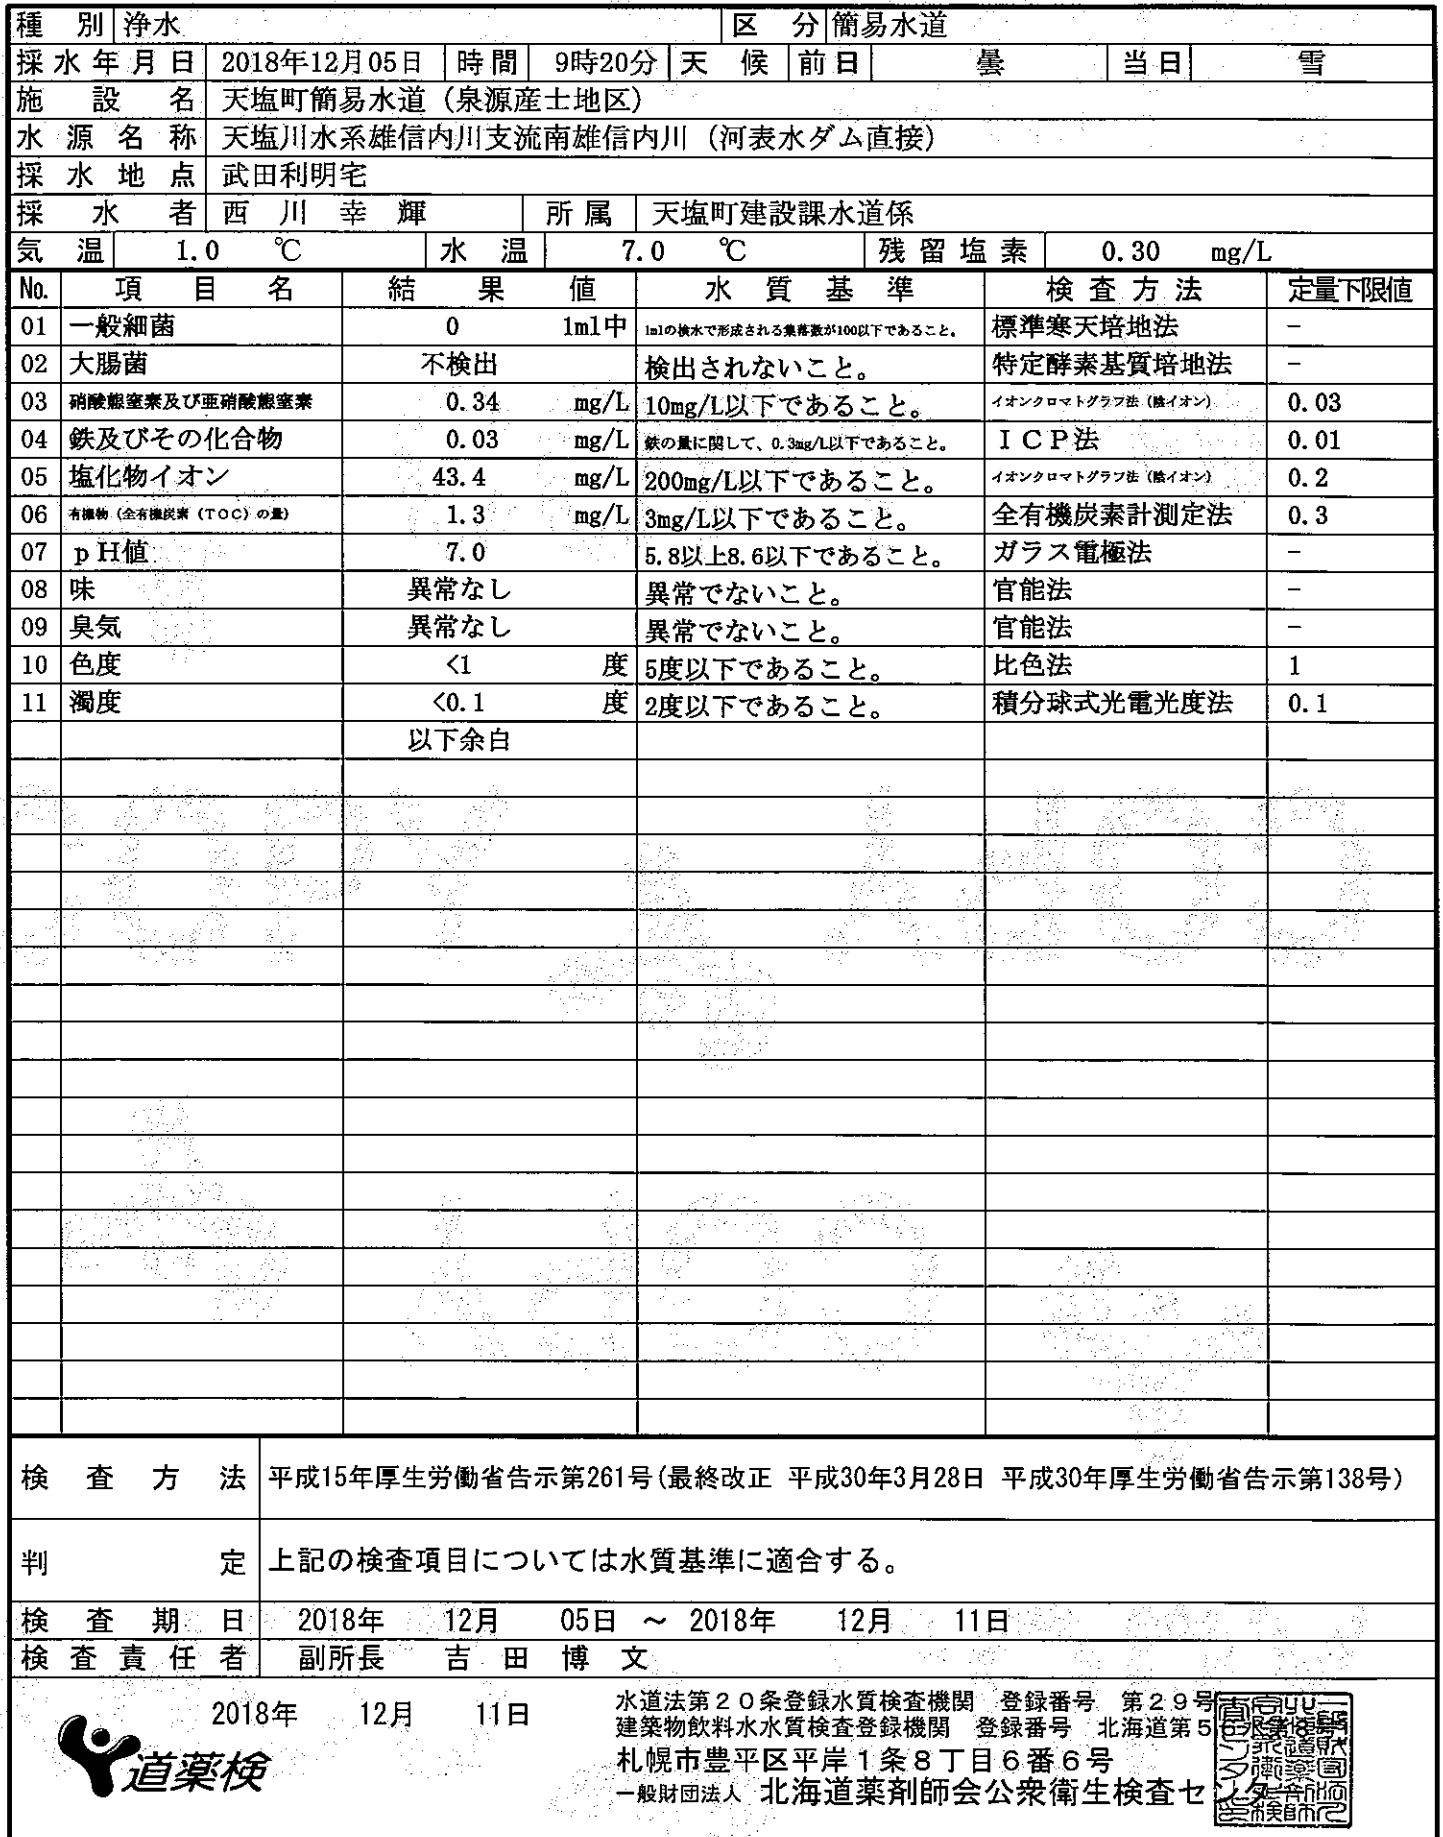 種 別 浄水 区 分 簡易水道
採水年月日 2018年12月05日 時間 9時20分 天 候 前日 曇 当日 雪
施 設 名 天塩町簡易水道（泉源産士地区）
水 源 名 称 天塩川水系雄信内川支流南雄信内川（河表水ダム直接）
採 水 地 点 武田利明宅
採 水 者 西 川 幸 輝 所属 天塩町建設課水道係
気 温 1.0 ℃ 水 温 7.0 ℃ 残留塩素 0.30 mg/L
No. 項 目 名 結 果 値 水 質 基 準 検査方法 定量下限値
01 一般細菌 0 1ml中 1mlの検水で形成される集落数が100以下であること。 標準寒天培地法 －
02 大腸菌 不検出 検出されないこと。 特定酵素基質培地法 －
03 硝酸態窒素及び亜硝酸態窒素 0.34 mg/L 10mg/L以下であること。 イオンクロマトグラフ法（陰イオン） 0.03
04 鉄及びその化合物 0.03 mg/L 鉄の量に関して、0.3mg/L以下であること。 ＩＣＰ法 0.01
05 塩化物イオン 43.4 mg/L 200mg/L以下であること。 イオンクロマトグラフ法（陰イオン） 0.2
06 有機物（全有機炭素（TOC）の量） 1.3 mg/L 3mg/L以下であること。 全有機炭素計測定法 0.3
07 ｐH値 7.0 5.8以上8.6以下であること。 ガラス電極法 －
08 味 異常なし 異常でないこと。 官能法 －
09 臭気 異常なし 異常でないこと。 官能法 －
10 色度 <1 度 5度以下であること。 比色法 1
11 濁度 <0.1 度 2度以下であること。 積分球式光電光度法 0.1
以下余白
検 査 方 法 平成15年厚生労働省告示第261号(最終改正 平成30年3月28日 平成30年厚生労働省告示第138号)
判 定 上記の検査項目については水質基準に適合する。
検 査 期 日 2018年 12月 05日 ～ 2018年 12月 11日
検査責任者 副所長 吉 田 博 文
2018年 12月 11日
水道法第２０条登録水質検査機関 登録番号 第２９号
建築物飲料水水質検査登録機関 登録番号 北海道第５６
札幌市豊平区平岸１条８丁目６番６号
一般財団法人 北海道薬剤師会公衆衛生検査センター
道薬検